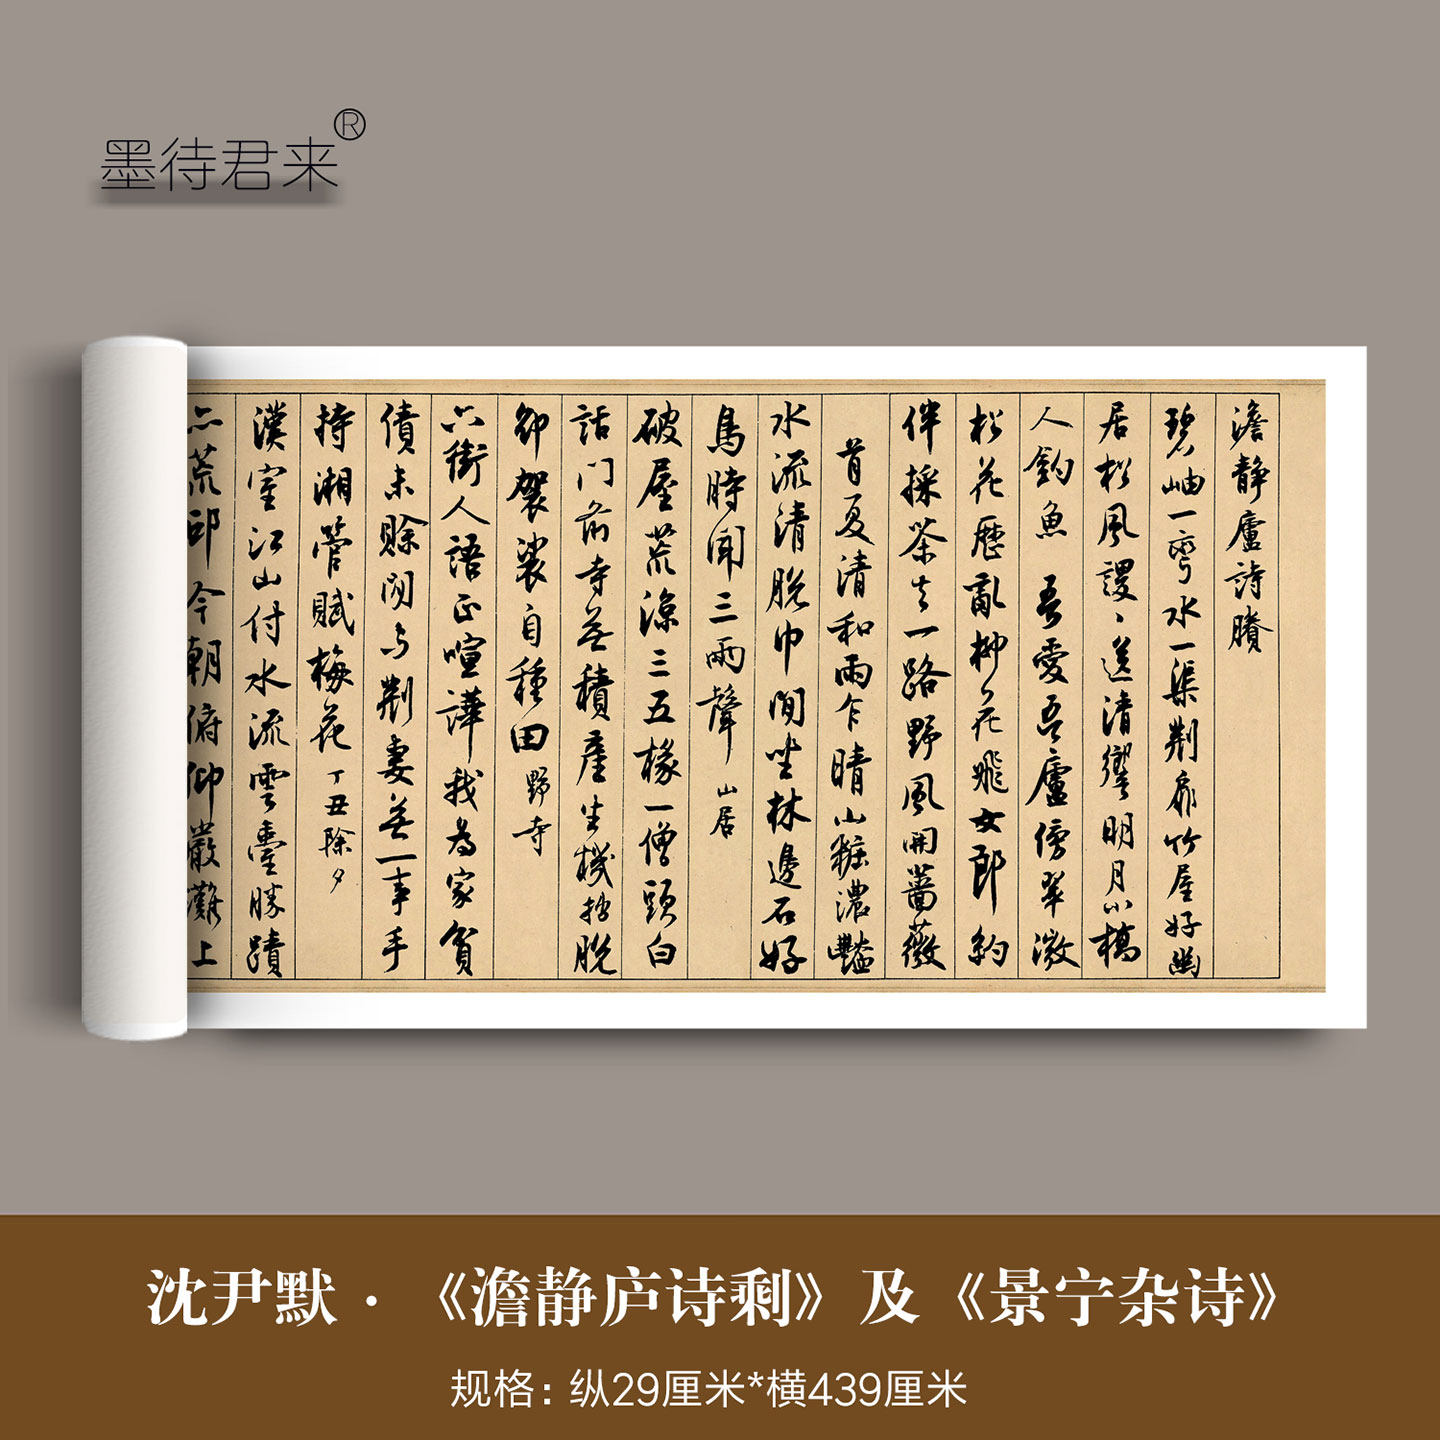 墨待君来®
澹静廬詩賸
碧岫一彎水一渠荆扉竹屋好幽
居松風謖〻送清響明月小橋
人釣魚 吾愛吾廬傍翠微
松花歷亂柳花飛女郎約
伴採茶去一路野風開薔薇
首夏清和雨乍晴山糚濃豔
水流清脱巾閒坐林邊石好
鳥時聞三兩聲 山居
破屋荒涼三五椽一僧頭白
話門前寺無積產生機拙脱
卻袈裟自種田 野寺
六街人語正喧譁我為家貧
債未賒閒与荆妻無一事手
持湘管賦梅花 丁丑除夕
漢室江山付水流雲臺勝蹟
亦荒邱今朝俯仰嚴灘上
沈尹默·《澹静庐诗剩》及《景宁杂诗》
规格：纵29厘米*横439厘米